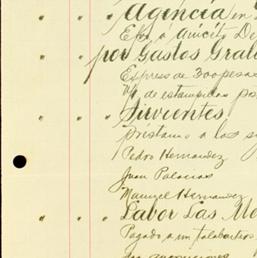 " " Agencia en
Efvo á
" " por Gastos Grales
Express de 300 pesos
de estampillas por
" " Sirvientes
préstamo a los
Pedro Hernandez
Juan Palacios
Manuel Hernandez
" " Labor Las
Pagado a un talabartero